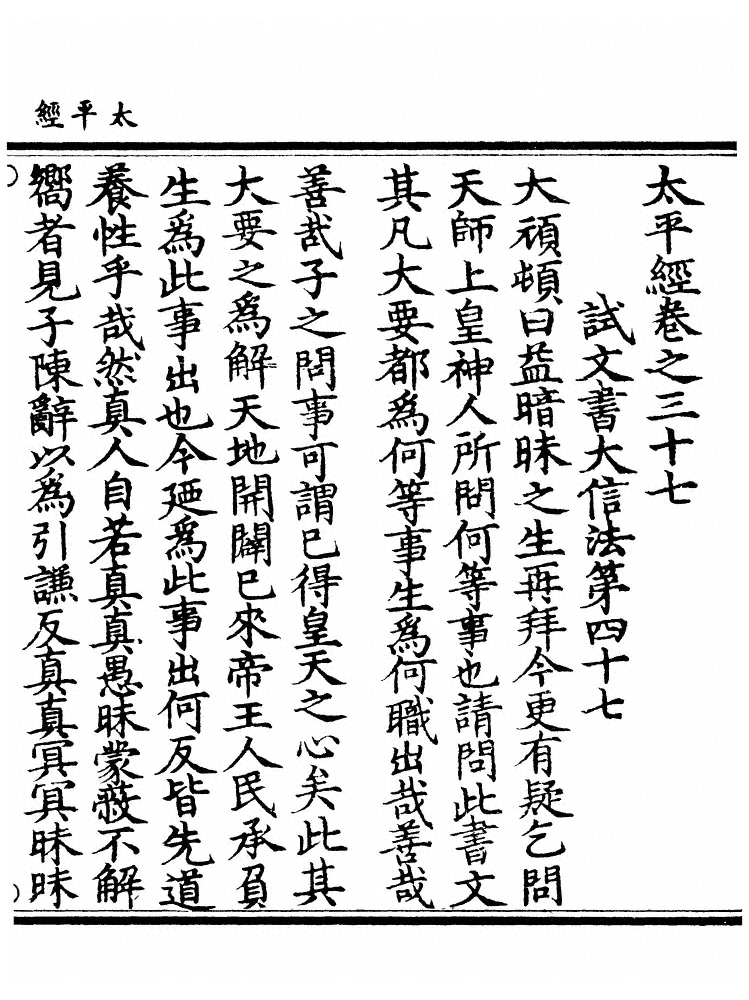 太平經
太平經卷之三十七
試文書大信法第四十七
大頑頓曰益暗昧之生再拜今更有疑乞問
天師上皇神人所問何等事也請問此書文
其凡大要都為何等事生為何職出哉善哉
善哉子之問事可謂已得皇天之心矣此其
大要之為解天地開闢已來帝王人民承負
生為此事出也今廼為此事出何反皆先道
養性乎哉然真人自若真真愚昧蒙蔽不解
嚮者見子陳辭以為引謙反真真冥冥昧昧